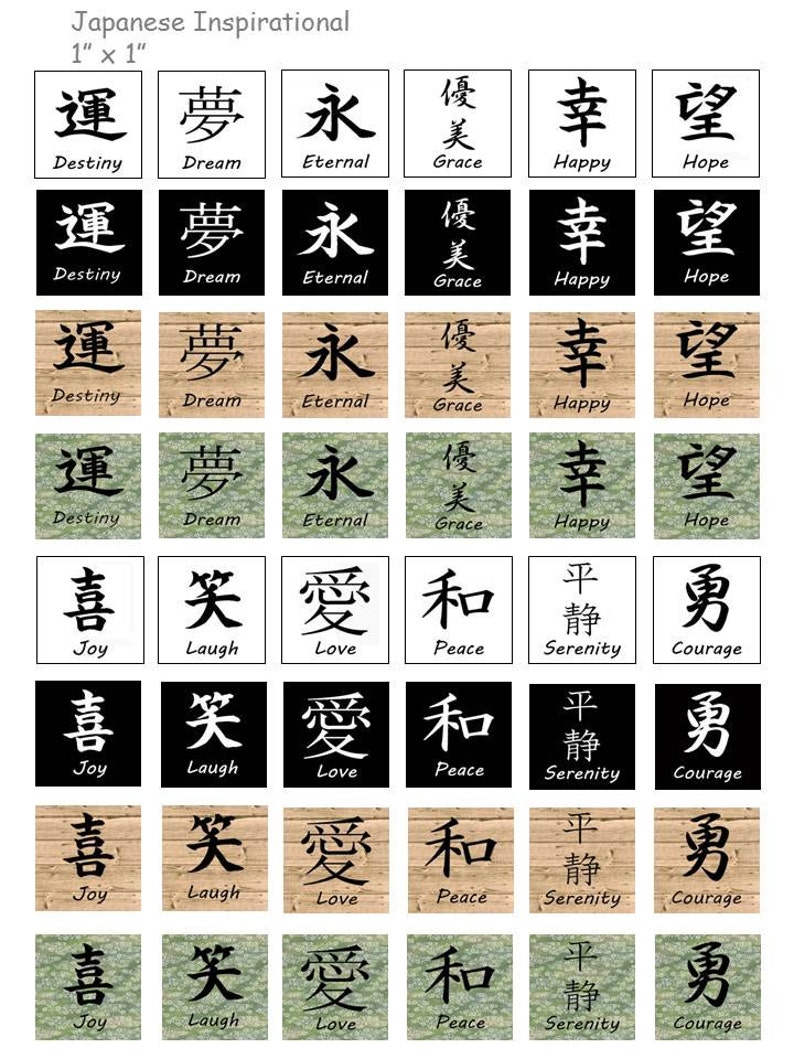 Japanese Inspirational
1” x 1”
運 夢 永 優美 幸 望
Destiny Dream Eternal Grace Happy Hope
運 夢 永 優美 幸 望
Destiny Dream Eternal Grace Happy Hope
運 夢 永 優美 幸 望
Destiny Dream Eternal Grace Happy Hope
運 夢 永 優美 幸 望
Destiny Dream Eternal Grace Happy Hope
喜 笑 愛 和 平静 勇
Joy Laugh Love Peace Serenity Courage
喜 笑 愛 和 平静 勇
Joy Laugh Love Peace Serenity Courage
喜 笑 愛 和 平静 勇
Joy Laugh Love Peace Serenity Courage
喜 笑 愛 和 平静 勇
Joy Laugh Love Peace Serenity Courage